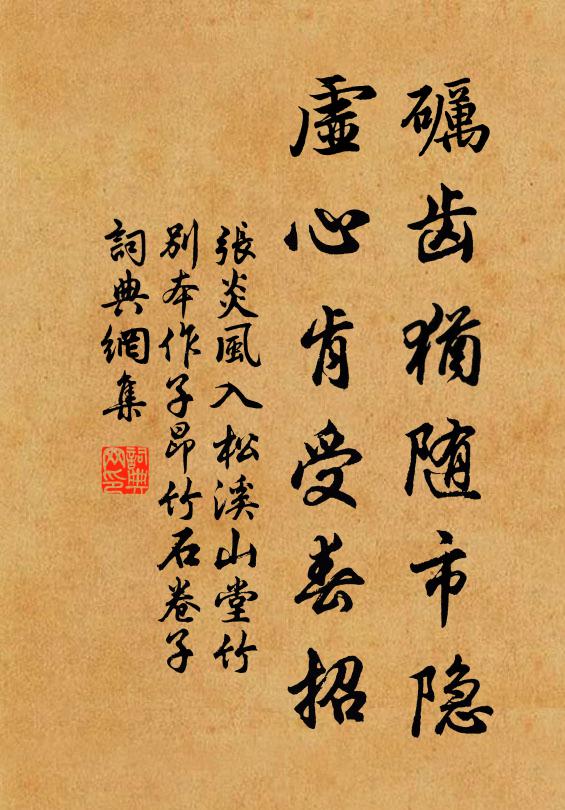 礪齿猶随市隐
虛心肯受春招
張炎風入松溪山堂竹
別本作子昂竹石卷子
詞典網集
詞典网印